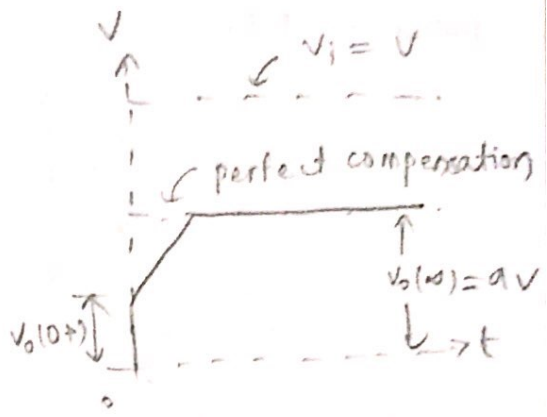 V
vᵢ = V
perfect compensation
v₀(∞) = a V
v₀(0+)
t
0